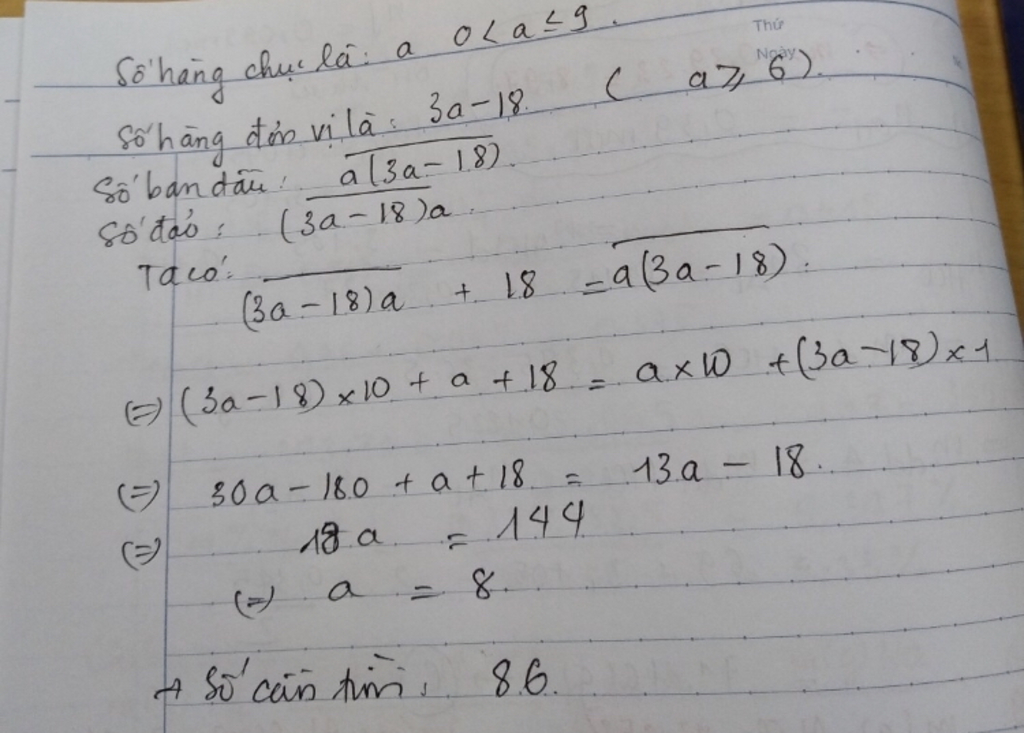 Thứ
Ngày
Số hàng chục là: a 0 < a ≤ 9.
Số hàng đơn vị là: 3a - 18 ( a ≥ 6).
Số ban đầu: a(3a - 18).
Số đảo: (3a - 18)a.
Ta có: (3a - 18)a + 18 = a(3a - 18).
(=) (3a - 18) × 10 + a + 18 = a × 10 + (3a - 18) × 1
(=) 30a - 180 + a + 18 = 13a - 18.
(=) 18a = 144
(=) a = 8.
→ Số cần tìm: 86.